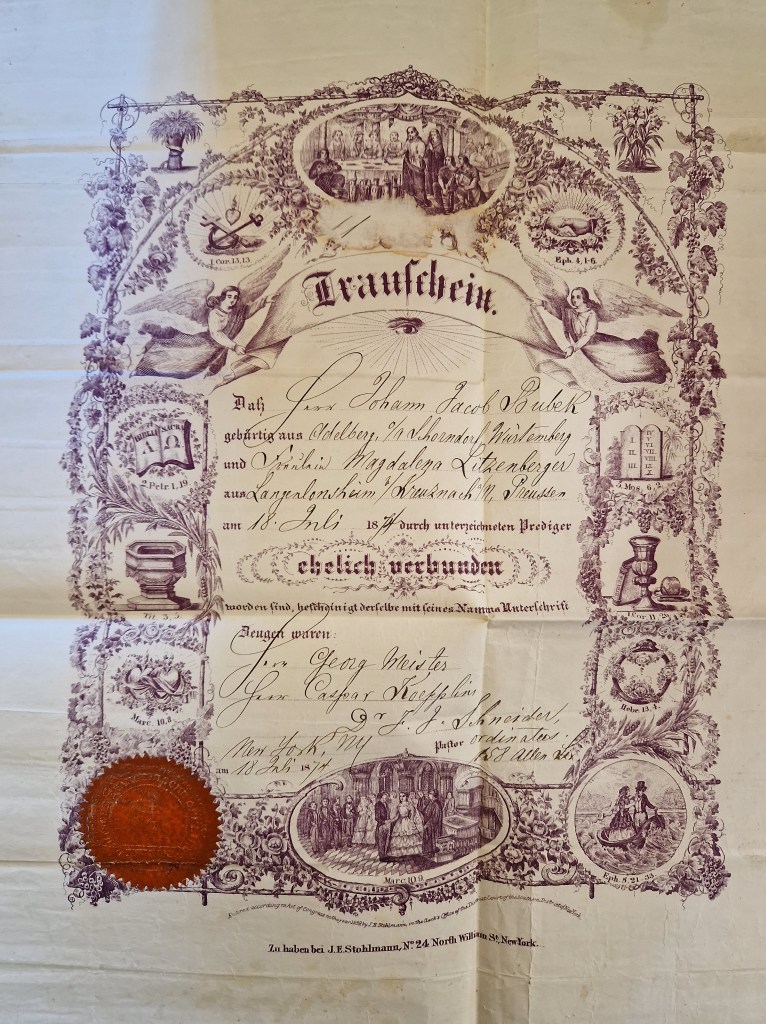 1 Cor. 13, 13.
Eph. 4, 1-6.
Trauschein.
Daß Herr Johann Jacob Bubek
gebürtig aus Adelberg, O/A Schorndorf, Würtemberg
und Fräulein Magdalena Litzenberger
aus Langenlonsheim b/ Kreuznach a/N, Preussen
am 18. Juli 1874 durch unterzeichneten Prediger
ehelich verbunden
worden sind, bescheinigt derselbe mit seines Namens Unterschrift
BIBLIA SACRA
Α Ω
2. Petr. 1, 19
I. II. III.
IV V VI VII VIII IX X
5. Mos. 6, 2
Tit. 3, 5
1 Cor. 11, 26
Zeugen waren:
Herr Georg Meister
Herr Caspar Koepplin
Dr F. J. Schneider,
Pastor ordinatus.
158 Allen Str.
New York, NY
am 18 Juli 1874
Marc. 10, 8.
Hebr. 13, 4.
Marc. 10, 9.
Eph. 5, 21-33.
Entered according to Act of Congress in the year by J. E. Stohlmann, in the Clerk's Office of the District Court of the Southern District of New York.
Zu haben bei J. E. Stohlmann, No. 24 North William St., New York.